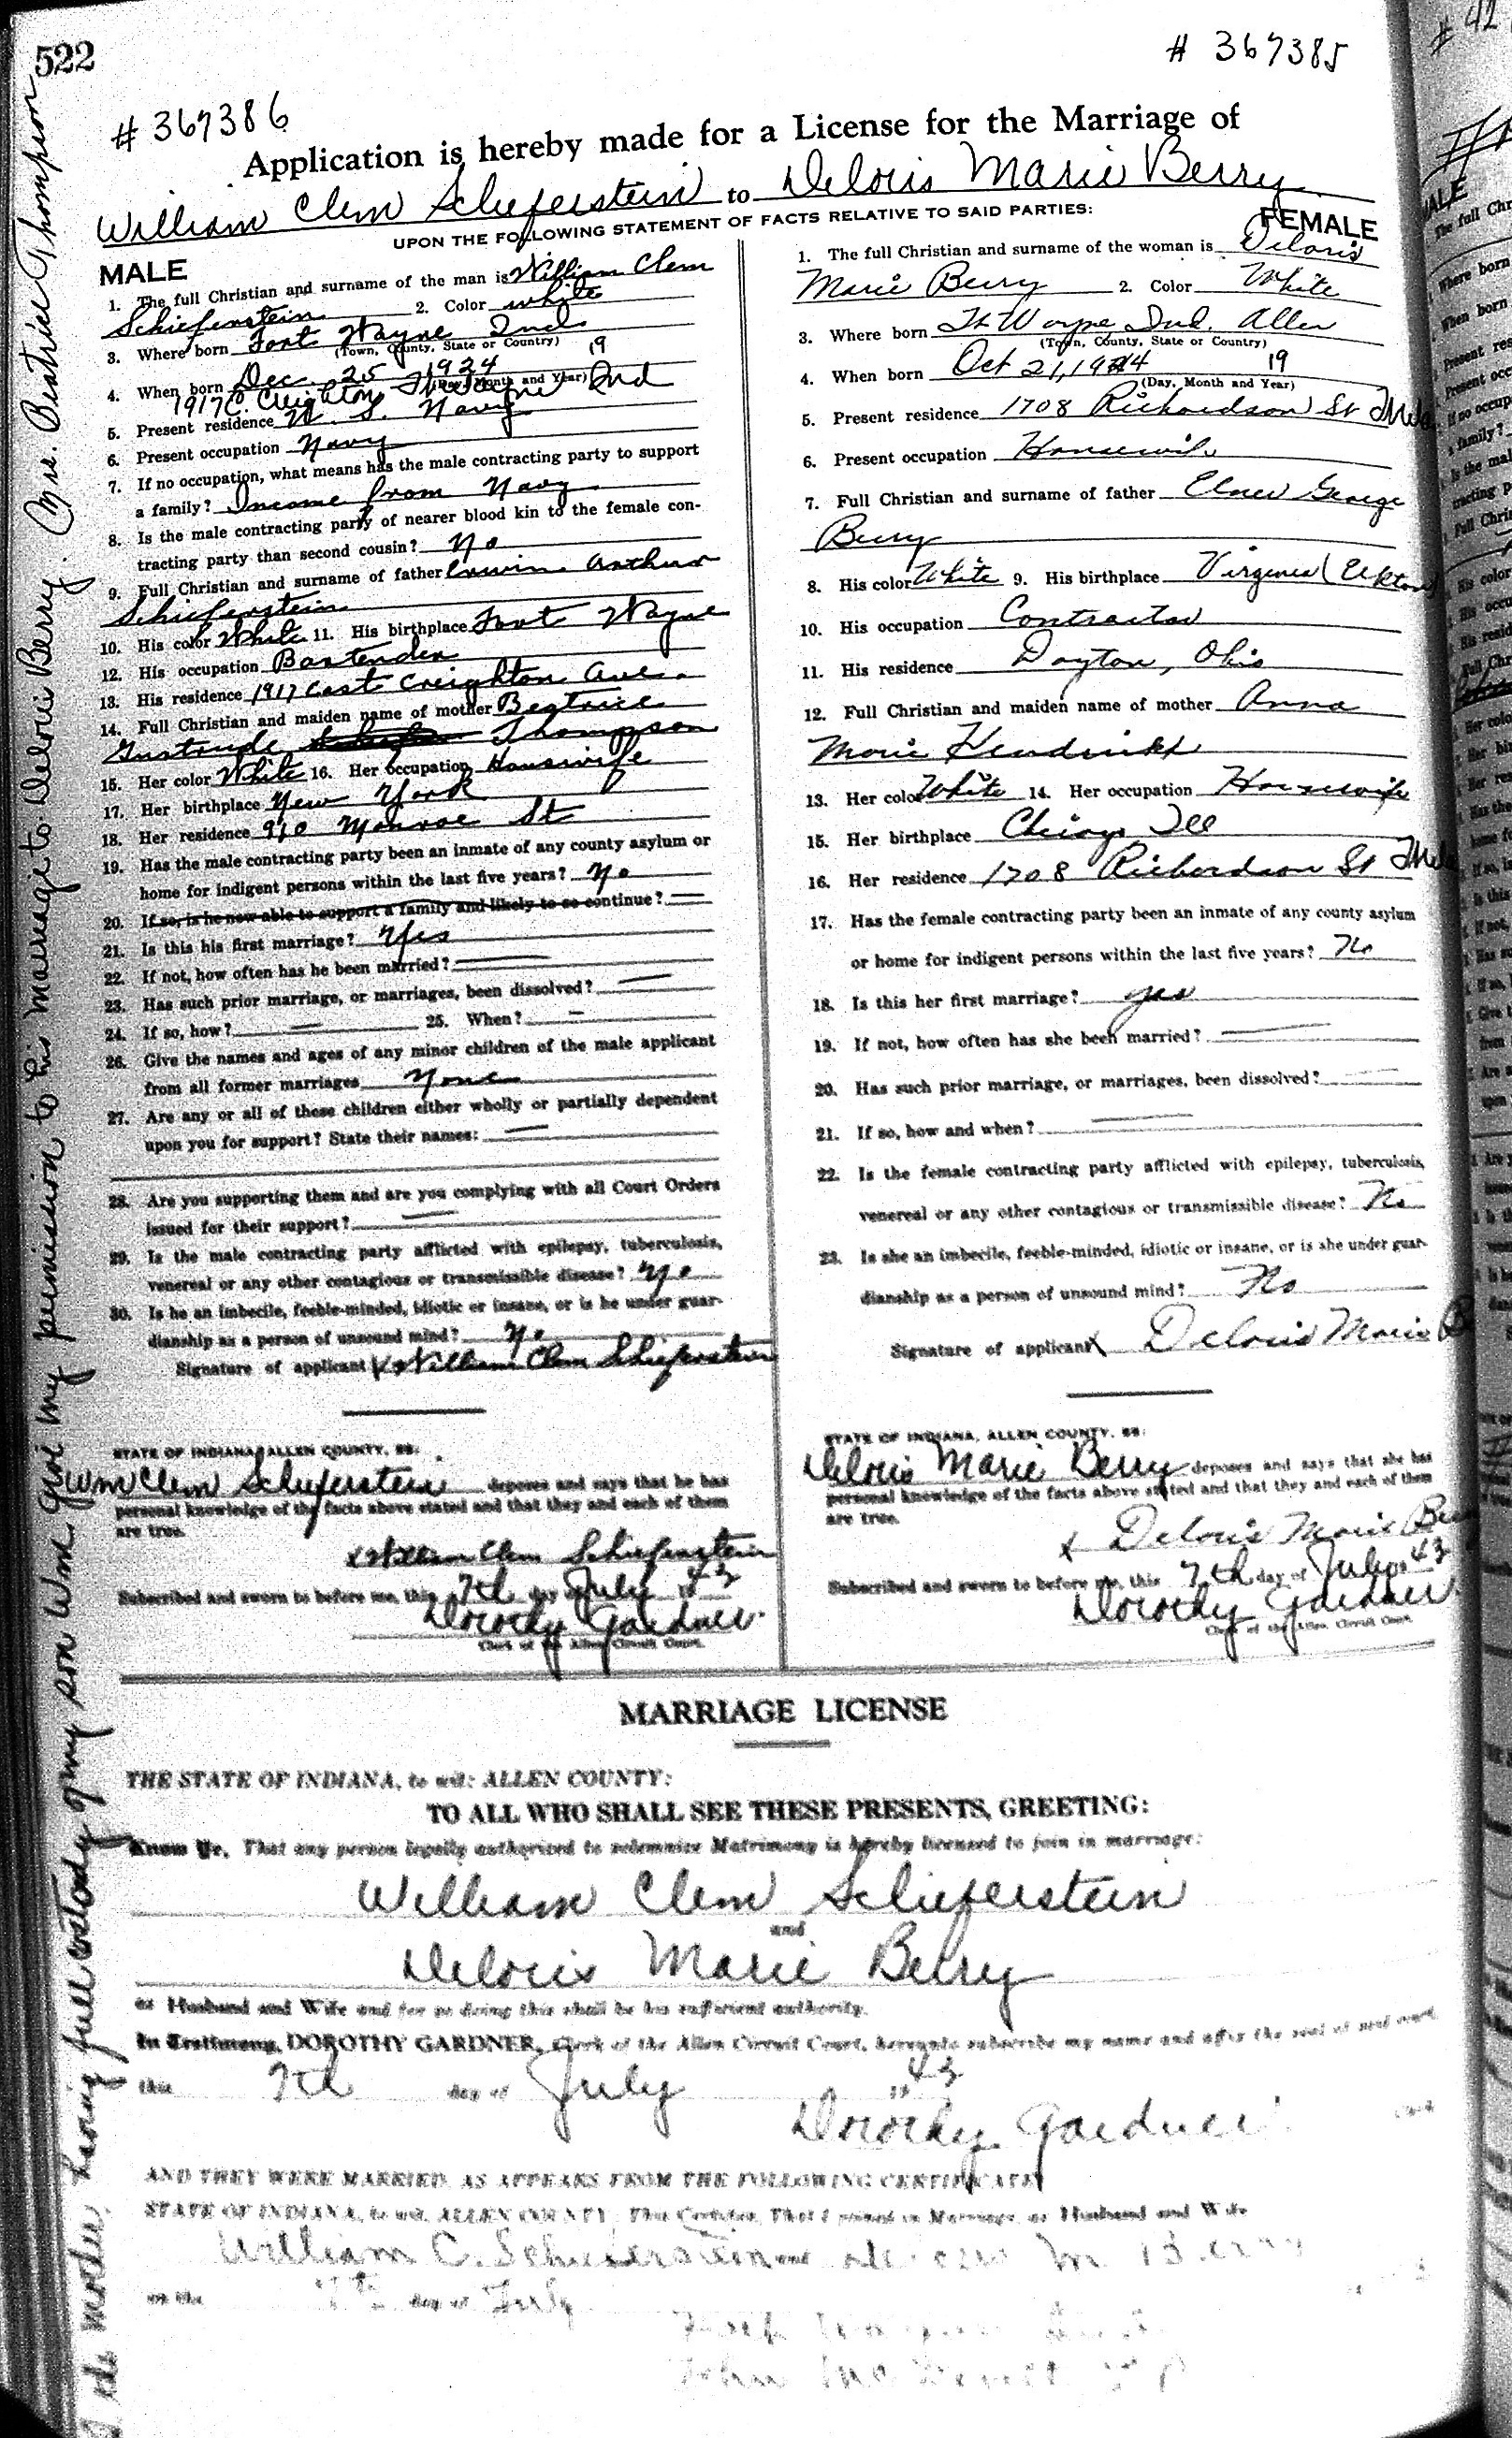 522
# 367385
# 367386
Application is hereby made for a License for the Marriage of
William Clem Schieferstein to Delouis Marie Berry
UPON THE FOLLOWING STATEMENT OF FACTS RELATIVE TO SAID PARTIES:
MALE
1. The full Christian and surname of the man is William Clem
Schieferstein 2. Color White
3. Where born Fort Wayne Ind.
(Town, County, State or Country)
4. When born Dec. 25 1924 19
(Day, Month and Year)
1917 E. Creighton Ft Wayne Ind
5. Present residence U. S. Navy
6. Present occupation Navy
7. If no occupation, what means has the male contracting party to support
a family? Income from Navy
8. Is the male contracting party of nearer blood kin to the female con-
tracting party than second cousin? No
9. Full Christian and surname of father Erwin Arthur
Schieferstein
10. His color White 11. His birthplace Fort Wayne
12. His occupation Bartender
13. His residence 1917 East Creighton Ave.
14. Full Christian and maiden name of mother Beatrice
Gertrude Thompson
15. Her color White 16. Her occupation Housewife
17. Her birthplace New York
18. Her residence 910 Monroe St
19. Has the male contracting party been an inmate of any county asylum or
home for indigent persons within the last five years? No
20. If so, is he now able to support a family and likely to so continue?
21. Is this his first marriage? Yes
22. If not, how often has he been married?
23. Has such prior marriage, or marriages, been dissolved?
24. If so, how? 25. When?
26. Give the names and ages of any minor children of the male applicant
from all former marriages None
27. Are any or all of these children either wholly or partially dependent
upon you for support? State their names:
28. Are you supporting them and are you complying with all Court Orders
issued for their support?
29. Is the male contracting party afflicted with epilepsy, tuberculosis,
venereal or any other contagious or transmissible disease? No
30. Is he an imbecile, feeble-minded, idiotic or insane, or is he under guar-
dianship as a person of unsound mind? No
Signature of applicant x William Clem Schieferstein
STATE OF INDIANA, ALLEN COUNTY, SS:
Wm Clem Schieferstein deposes and says that he has
personal knowledge of the facts above stated and that they and each of them
are true.
x William Clem Schieferstein
Subscribed and sworn to before me, this 7th day of July 1943
Dorothy Gardner
Clerk of the Allen Circuit Court.
FEMALE
1. The full Christian and surname of the woman is Delouis
Marie Berry 2. Color White
3. Where born Ft Wayne, Ind. Allen
(Town, County, State or Country)
4. When born Oct 21, 1924 19
(Day, Month and Year)
5. Present residence 1708 Richardson St
6. Present occupation Housewife
7. Full Christian and surname of father George
Berry
8. His color White 9. His birthplace Virginia (Elkton
10. His occupation Contractor
11. His residence Dayton, Ohio
12. Full Christian and maiden name of mother Anna
Marie
13. Her color White 14. Her occupation Housewife
15. Her birthplace Chicago Ill
16. Her residence 1708 Richardson St
17. Has the female contracting party been an inmate of any county asylum
or home for indigent persons within the last five years? No
18. Is this her first marriage? yes
19. If not, how often has she been married?
20. Has such prior marriage, or marriages, been dissolved?
21. If so, how and when?
22. Is the female contracting party afflicted with epilepsy, tuberculosis,
venereal or any other contagious or transmissible disease? No
23. Is she an imbecile, feeble-minded, idiotic or insane, or is she under guar-
dianship as a person of unsound mind? No
Signature of applicant x Delouis Marie B
STATE OF INDIANA, ALLEN COUNTY, SS:
Delouis Marie Berry deposes and says that she has
personal knowledge of the facts above stated and that they and each of them
are true.
x Delouis Marie Ber
Subscribed and sworn to before me, this 7th day of July 1943
Dorothy Gardner
Clerk of the Allen Circuit Court.
MARRIAGE LICENSE
THE STATE OF INDIANA, to wit: ALLEN COUNTY:
TO ALL WHO SHALL SEE THESE PRESENTS, GREETING:
Know Ye, That any person legally authorized to solemnize Matrimony is hereby licensed to join in marriage:
William Clem Schieferstein
and
Delouis Marie Berry
as Husband and Wife and for so doing this shall be his sufficient authority.
In Testimony, DOROTHY GARDNER, Clerk of the Allen Circuit Court, hereunto subscribe my name and affix the seal of said court,
this 7th day of July 1943
Dorothy Gardner Clerk
AND THEY WERE MARRIED, AS APPEARS FROM THE FOLLOWING CERTIFICATE:
STATE OF INDIANA, to wit, ALLEN COUNTY: This Certifies, That I joined in Marriage as Husband and Wife
William C. Schieferstein and M. Berry
on the 7th day of July
John
mother, having full custody of my son Wm. give my permission to his marriage to Delouis Berry. Mrs. Beatrice Thompson